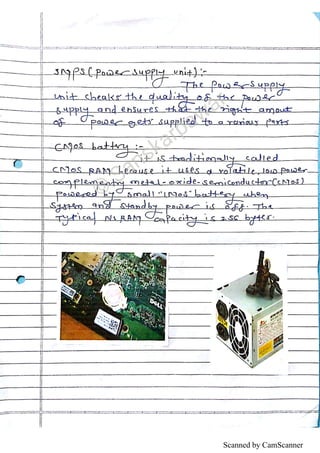 SMPS (Power Supply unit) :-
The Power Supply
unit cheaks the quality of the power
supply and ensures that the right amout
of power gets supplied to a various parts
CMOS battery :-
it is traditionally called
CMOS RAM because it uses a volatile, low power
complementry metal-oxide-semiconductor (CMOS)
powered by small "CMOS" battery when
System and standby power is off. The
Typical NVRAM capacity is 256 bytes.
DELL
Scanned by CamScanner